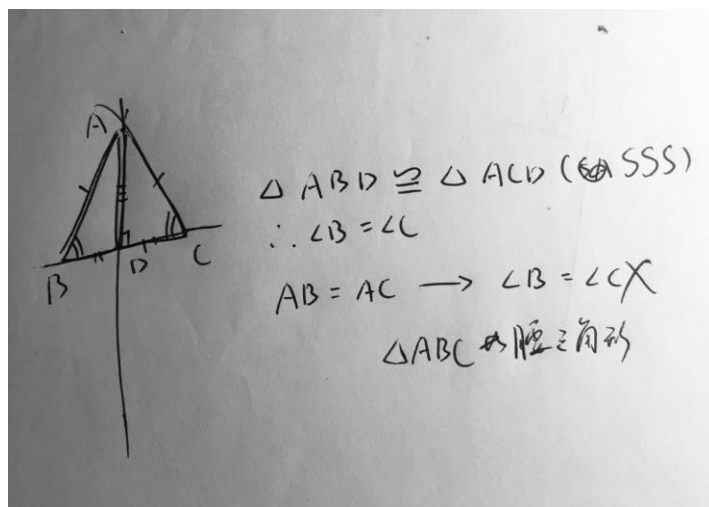 A
B
D
C
△ABD ≌ △ACD (SSS)
∴ ∠B = ∠C
AB = AC → ∠B = ∠C X
△ABC 三角形